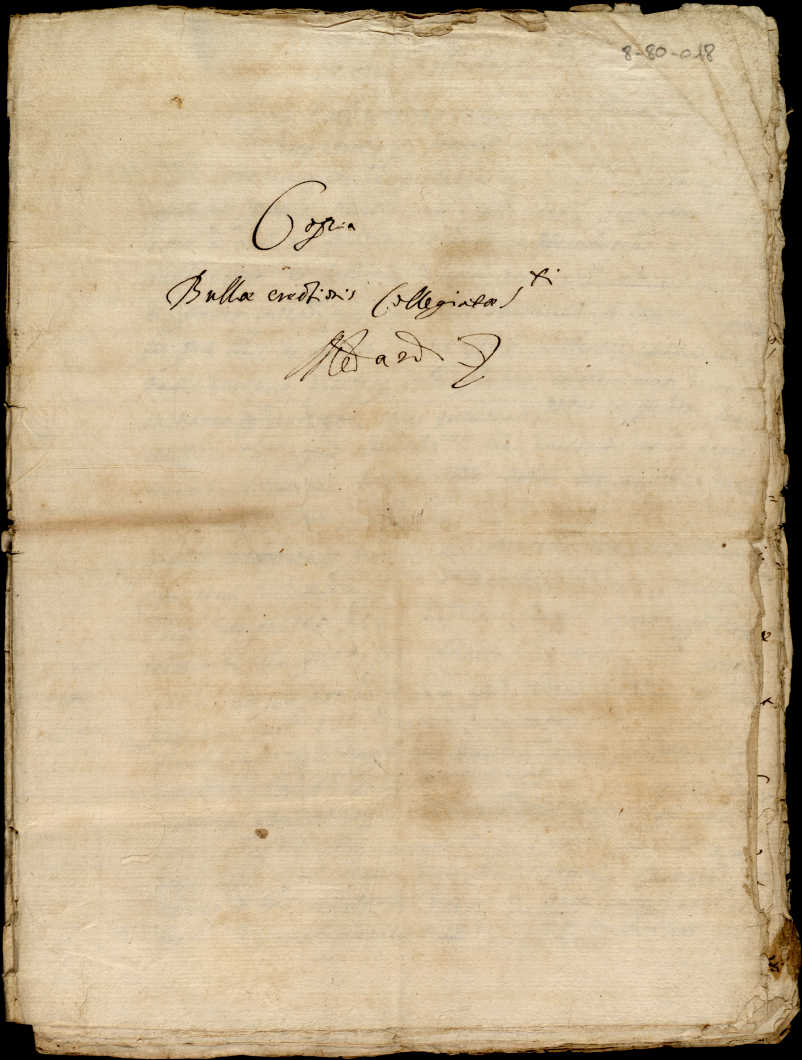 8-80-018
Copia
Bullæ erectionis Collegiatæ S^ti
Medardi